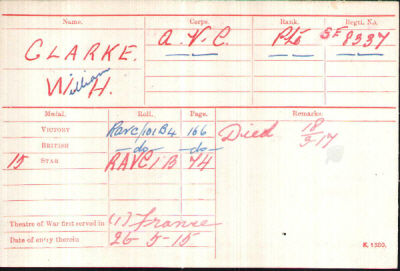 Name. Corps. Rank. Regtl. No.
CLARKE. A.V.C. Pte SE 8337
William
W. H.
Medal. Roll. Page. Remarks.
VICTORY RAVC/101 B4 166 Died 18/5/17
BRITISH —do— —do—
15 STAR RAVC 1 B 74
Theatre of War first served in (1) France
Date of entry therein 26-5-15
K. 1380.